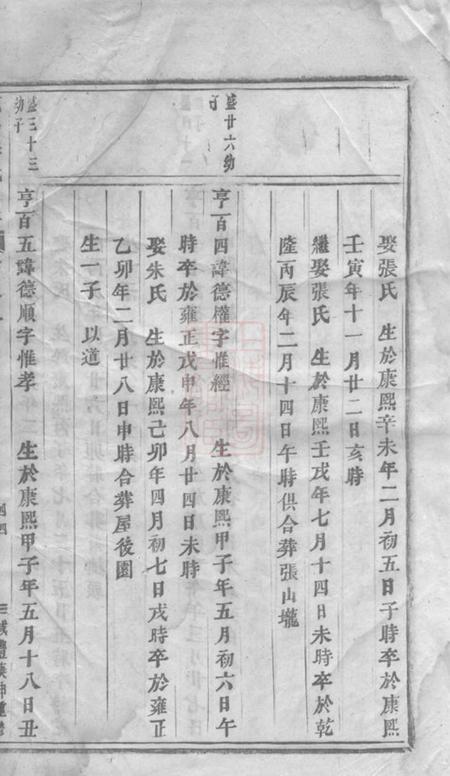 娶張氏　生於康熙辛未年二月初五日子時卒於康熙
壬寅年十一月廿二日亥時
繼娶張氏　生於康熙壬戌年七月十四日未時卒於乾
隆丙辰年二月十四日午時俱合葬張山壠
盛廿六幼子
亨百四諱德權字惟經　生於康熙甲子年五月初六日午
時卒於雍正戊申年八月廿四日未時
娶朱氏　生於康熙己卯年四月初七日戌時卒於雍正
乙卯年二月廿八日申時合葬屋後園
生一子　以道
盛三十三幼子
亨百五諱德順字惟孝　生於康熙甲子年五月十八日丑